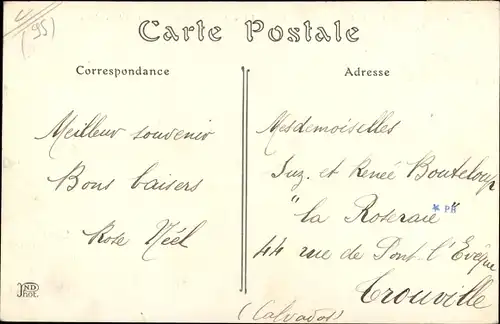 (95)
Carte Postale
Correspondance
Adresse
Meilleur souvenir
Bons baisers
Rose Néel
Mesdemoiselles
Suz. et Renée Bouteloup
"La Roseraie"
* PH
44 rue de Pont-l'Evêque
Trouville
(Calvados)
ND Phot.